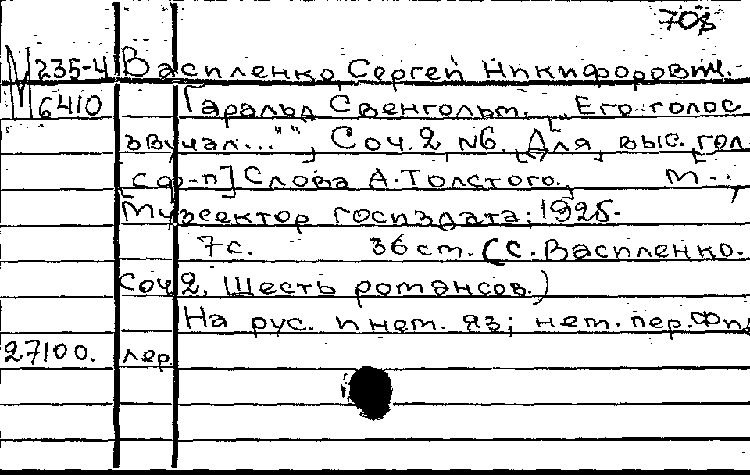 708
М 235-4 Василенко, Сергей Никифорович.
6410 Гаральд Свенгольм. „Его голос
звучал..."", Соч. 2, №6. [Для выс. гол.
с ф-п] Слова А. Толстого., М.,
Музсектор госиздата; 1925.
7с. 36 ст. (С. Василенко.
Соч 2. Шесть романсов.)
На рус. и нем. яз; нем. пер. Фид
27100. лер